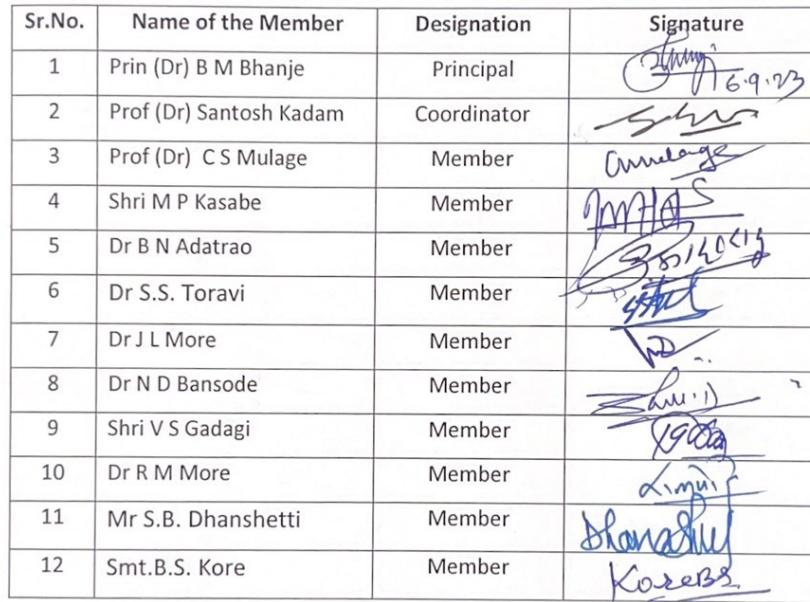 Sr.No. Name of the Member Designation Signature
1 Prin (Dr) B M Bhanje Principal 6.9.23
2 Prof (Dr) Santosh Kadam Coordinator
3 Prof (Dr) C S Mulage Member
4 Shri M P Kasabe Member
5 Dr B N Adatrao Member
6 Dr S.S. Toravi Member
7 Dr J L More Member
8 Dr N D Bansode Member
9 Shri V S Gadagi Member
10 Dr R M More Member
11 Mr S.B. Dhanshetti Member
12 Smt.B.S. Kore Member KoreBS